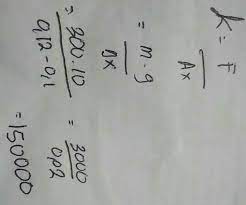 K = F / Δx
= m·g / Δx
= 300·10 / 0,12-0,1 = 3000 / 0,02
= 150000